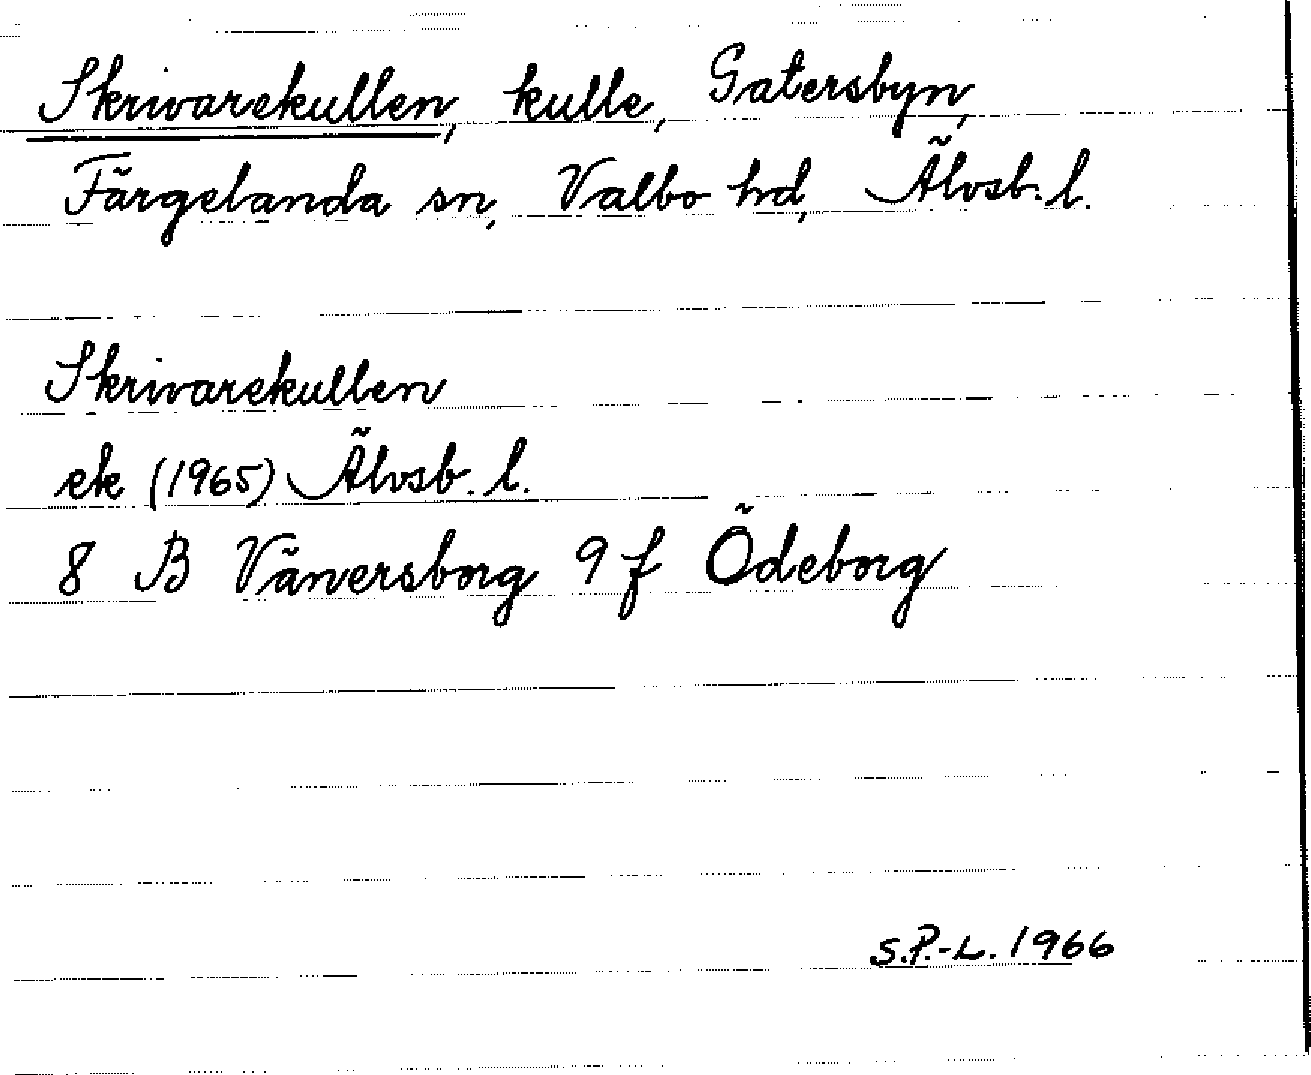 Skrivarekullen, kulle, Gatersbyn,
Färgelanda sn, Valbo hd, Älvsb. l.
Skrivarekullen
ek (1965) Älvsb. l.
8 B Vänersborg 9 f Ödeborg
S.P.-L. 1966